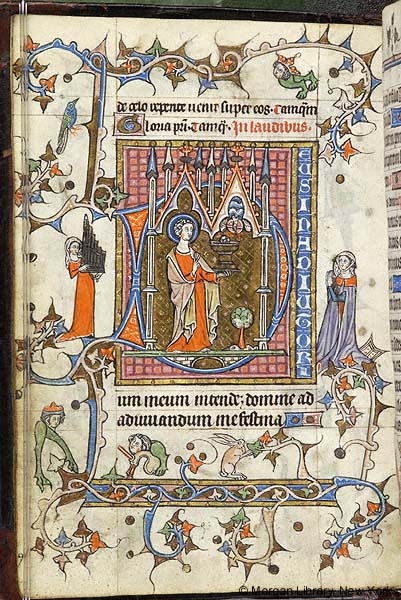 de celo repente uenit super eos. Tamqm
Gloria pri. Tamq. In laudibus.
D EUS IN ADIUTORI
um meum intende: domine ad
adiuuandum me festina
© Morgan Library, New York